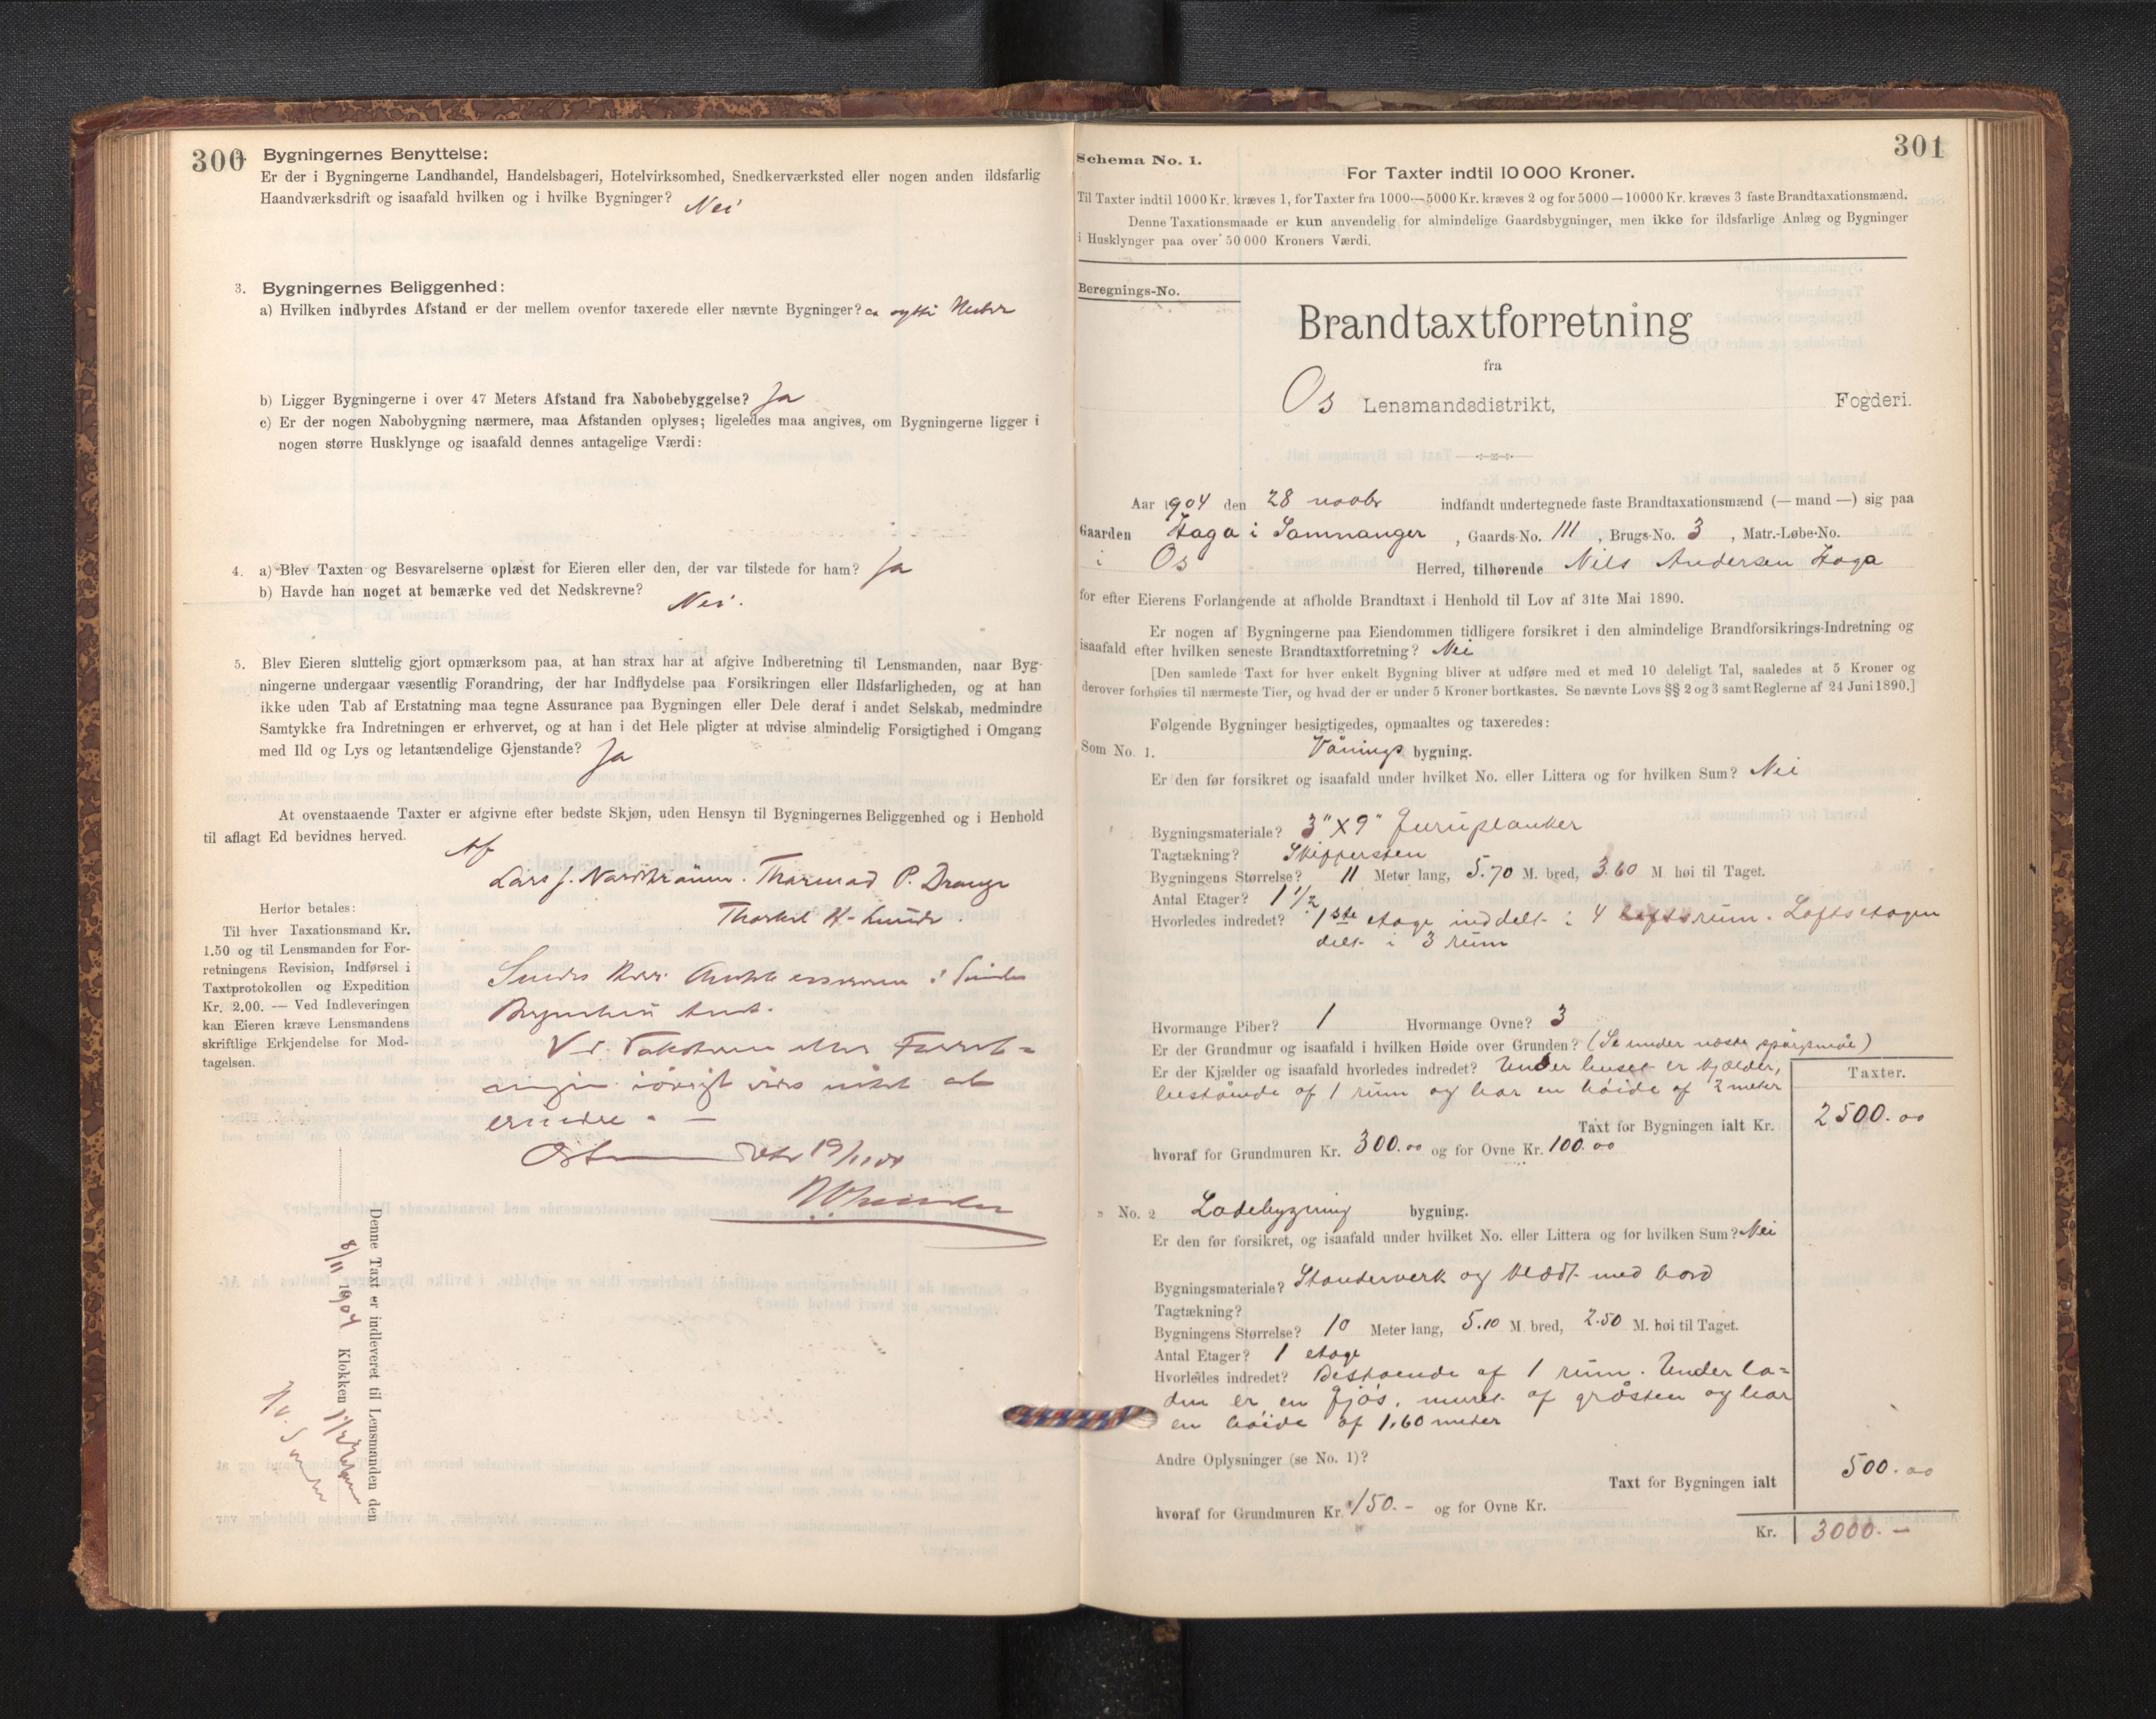 300
2. Bygningernes Benyttelse:
Er der i Bygningerne Landhandel, Handelsbageri, Hotelvirksomhed, Snedkerværksted eller nogen anden ildsfarlig
Haandværksdrift og isaafald hvilken og i hvilke Bygninger? Nei
3. Bygningernes Beliggenhed:
a) Hvilken indbyrdes Afstand er der mellem ovenfor taxerede eller nævnte Bygninger? ca sytti Meter
b) Ligger Bygningerne i over 47 Meters Afstand fra Nabobebyggelse? Ja
c) Er der nogen Nabobygning nærmere, maa Afstanden oplyses; ligeledes maa angives, om Bygningerne ligger i
nogen større Husklynge og isaafald dennes antagelige Værdi:
4. a) Blev Taxten og Besvarelserne oplæst for Eieren eller den, der var tilstede for ham? Ja
b) Havde han noget at bemærke ved det Nedskrevne? Nei.
5. Blev Eieren sluttelig gjort opmærksom paa, at han strax har at afgive Indberetning til Lensmanden, naar Byg-
ningerne undergaar væsentlig Forandring, der har Indflydelse paa Forsikringen eller Ildsfarligheden, og at han
ikke uden Tab af Erstatning maa tegne Assurance paa Bygningen eller Dele deraf i andet Selskab, medmindre
Samtykke fra Indretningen er erhvervet, og at han i det Hele pligter at udvise almindelig Forsigtighed i Omgang
med Ild og Lys og letantændelige Gjenstande? Ja
At ovenstaaende Taxter er afgivne efter bedste Skjøn, uden Hensyn til Bygningernes Beliggenhed og i Henhold
til aflagt Ed bevidnes herved.
Af
Lars J. Thormod P. Drange
Thorkel K. Lunde.
Herfor betales:
Til hver Taxationsmand Kr.
1.50 og til Lensmanden for For-
retningens Revision, Indførsel i
Taxtprotokollen og Expedition
Kr. 2.00. — Ved Indleveringen
kan Eieren kræve Lensmandens
skriftlige Erkjendelse for Mod-
tagelsen.
19/11 04
Denne Taxt er indleveret til Lensmanden den
8/11 1904 Klokken
301
Schema No. 1.
For Taxter indtil 10 000 Kroner.
Til Taxter indtil 1000 Kr. kræves 1, for Taxter fra 1000—5000 Kr. kræves 2 og for 5000—10000 Kr. kræves 3 faste Brandtaxationsmænd.
Denne Taxationsmaade er kun anvendelig for almindelige Gaardsbygninger, men ikke for ildsfarlige Anlæg og Bygninger
i Husklynger paa over 50 000 Kroners Værdi.
Beregnings-No.
Brandtaxtforretning
fra
Os Lensmandsdistrikt, Fogderi.
Aar 1904 den 28 novbr indfandt undertegnede faste Brandtaxationsmænd (— mand —) sig paa
Gaarden Haga i Samnanger, Gaards-No. 111, Brugs-No. 3, Matr.-Løbe-No.
i Os Herred, tilhørende Nils Andersen Haga
for efter Eierens Forlangende at afholde Brandtaxt i Henhold til Lov af 31te Mai 1890.
Er nogen af Bygningerne paa Eiendommen tidligere forsikret i den almindelige Brandforsikrings-Indretning og
isaafald efter hvilken seneste Brandtaxtforretning? Nei
[Den samlede Taxt for hver enkelt Bygning bliver at udføre med et med 10 deleligt Tal, saaledes at 5 Kroner og
derover forhøies til nærmeste Tier, og hvad der er under 5 Kroner bortkastes. Se nævnte Lovs §§ 2 og 3 samt Reglerne af 24 Juni 1890.]
Følgende Bygninger besigtigedes, opmaaltes og taxeredes:
Som No. 1. Vånings bygning.
Er den før forsikret og isaafald under hvilket No. eller Littera og for hvilken Sum? Nei
Bygningsmateriale? 3" X 9" Furuplanker
Tagtækning? Skiffersten
Bygningens Størrelse? 11 Meter lang, 5.70 M. bred, 3.60 M. høi til Taget.
Antal Etager? 1 1/2
Hvorledes indredet? 1ste etage inddelt i 4 rum. Loftsetagen
delt i 3 rum
Hvormange Piber? 1 Hvormange Ovne? 3
Er der Grundmur og isaafald i hvilken Høide over Grunden? (Se under næste spørgsmål)
Er der Kjælder og isaafald hvorledes indredet? Under huset er kjælder,
bestående af 1 rum og har en høide af 2 meter
Taxter.
Taxt for Bygningen ialt Kr. 2500.00
hvoraf for Grundmuren Kr. 300.00 og for Ovne Kr. 100.00
" No. 2 Ladebygning bygning.
Er den før forsikret, og isaafald under hvilket No. eller Littera og for hvilken Sum? Nei
Bygningsmateriale? Standerverk og klædt med bord
Tagtækning?
Bygningens Størrelse? 10 Meter lang, 5.10 M. bred, 2.50 M. høi til Taget.
Antal Etager? 1 etage
Hvorledes indredet? Bestaende af 1 rum. Under la=
den er en fjøs, muret af gråsten og har
en høide af 1,60 meter
Andre Oplysninger (se No. 1)?
Taxt for Bygningen ialt 500.00
hvoraf for Grundmuren Kr. 150.- og for Ovne Kr.
Kr. 3000.-